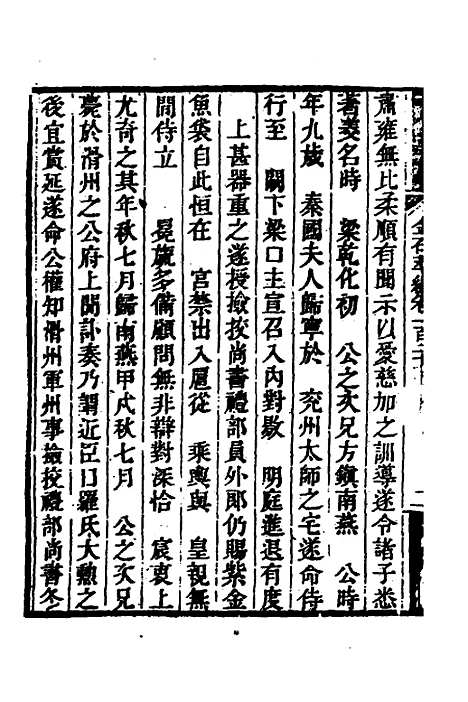 肅雍無比柔順有聞示以愛慈加之訓導遂令諸子悉
著義名時　梁乾化初　公之次兄方鎭南燕　公時
年九歲　秦國夫人歸寧於　兗州太師之宅遂命侍
行至　闕下梁口主宣召入內對敭　明庭進退有度
上甚器重之遂授撿挍尚書禮部員外郎仍賜紫金
魚袋自此恒在　宮禁出入扈從　乘輿與　皇視無
間侍立　晃蔬多備顧問無非辯對深恰　宸衷上
尤奇之其年秋七月歸南燕甲戌秋七月　公之次兄
薨於滑州之公府上聞訃奏乃謂近臣曰羅氏大勲之
後宜賞延遂命公權知滑州軍州事撿挍禮部尚書冬
金石萃編卷一百二十
二